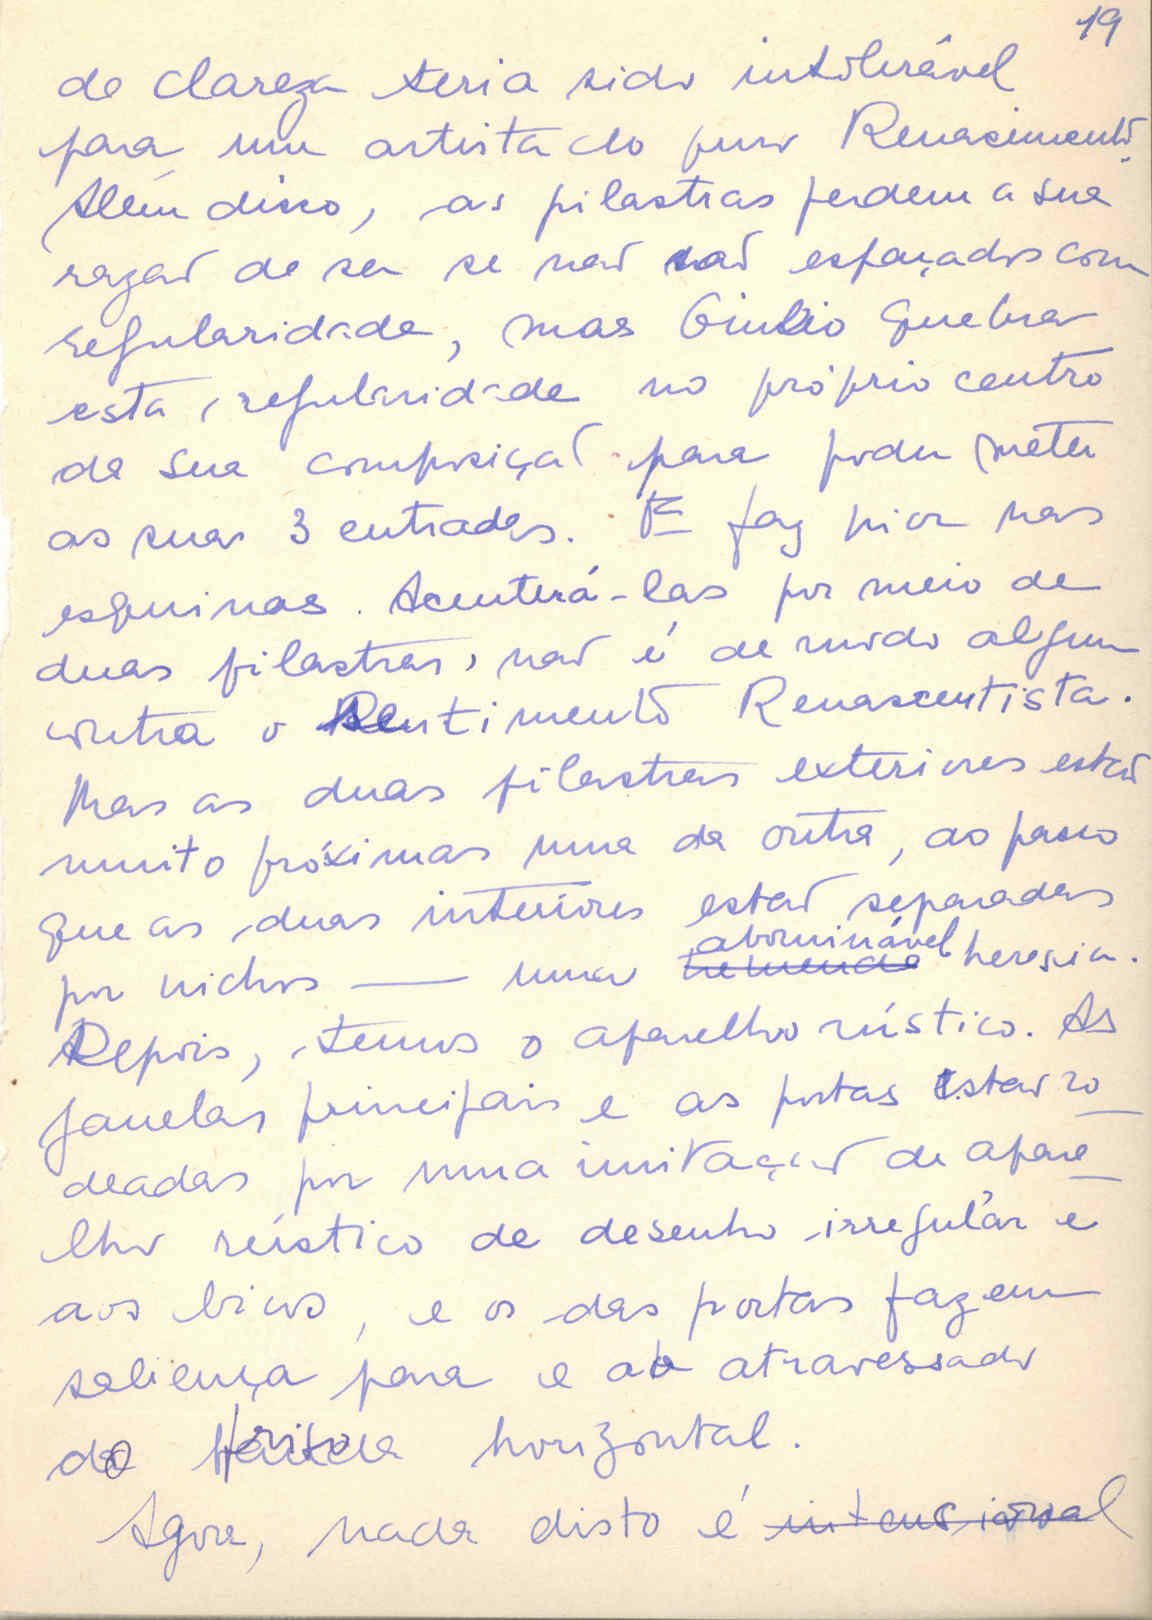 19
de clareza teria sido intolerável
para um artista do puro Renascimento.
Além disso, as pilastras perdem a sua
razão de ser se não são espaçados com
regularidade, mas Giulio quebra
esta regularidade no próprio centro
da sua composição para poder meter
as suas 3 entradas. E faz pior nas
esquinas. Acenterá-las por meio de
duas pilastras, não é de modo algum
contra o sentimento Renascentista.
Mas as duas pilastras exteriores estão
muito próximas uma da outra, ao passo
que as duas interiores estão separadas
abominável
por nichos — uma tremenda heresia.
Depois, temos o aparelho rústico. As
janelas principais e as portas estão ro-
deadas por uma imitação de apare-
lho rústico de desenho irregular e
aos bicos, e os das portas fazem
saliença para e ao atravessado
do friso horizontal.
Agora, nada disto é intensional